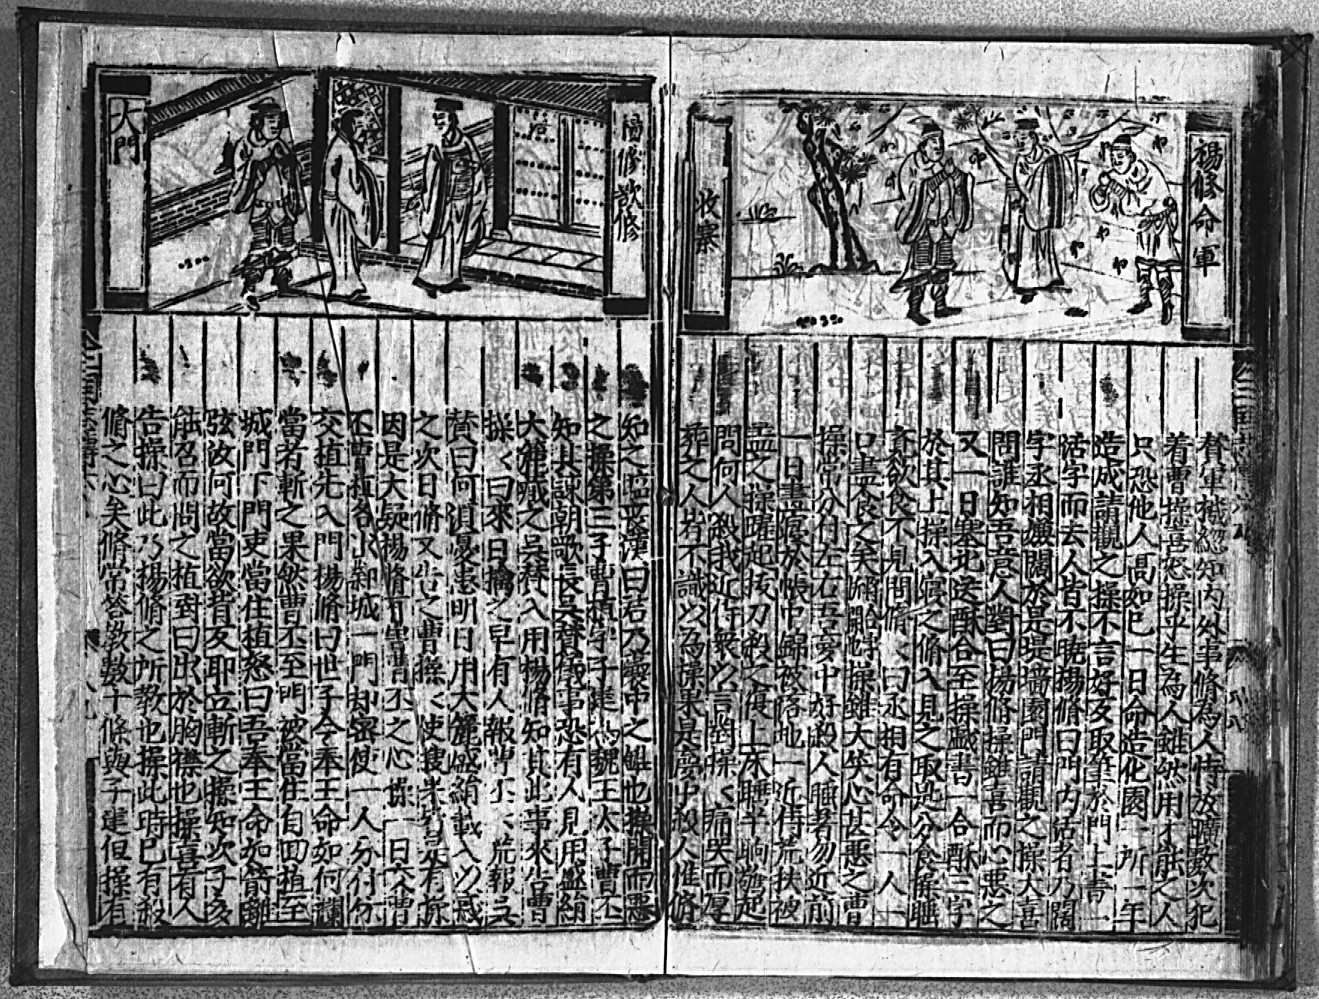 楊修命軍
收寨
督軍機總知內外事脩為人恃放曠數次犯
着曹操喜怒操乎生為人雖然用才能之人
只恐他人高如已一日命造化園一所一年
造成請觀之操不言好歹取筆於門上書一
活字而去人皆不曉楊脩曰門內活者乃闊
字丞相嫌闊於是堤牆園門請觀之操大喜
問誰知吾意人對曰楊脩操雖喜而心惡之
又一日塞北送酥合至操戲書一合酥三字
於其上操入寢之脩入見之取是分食操睡
齊欲食不見問脩〻曰丞相有命令一人一
口盡食之矣脩開時操雖大笑心甚惡之曹
操常分付左右吾夢中好殺人睡者勿近前
一日晝寢於帳中錦被落地一近侍荒扶被
盖之操躍起拔刀殺之復上床睡半晌驚起
問何人殺我近侍衆以言對操〻痛哭而厚
葬之人皆不識以為操果是夢中殺人惟脩
楊修欲修
大門
知之臨喪漢曰君乃囊中之錐也操聞而惡
之操第三子曹植字子建為魏王太子曹丕
知其諫朝歌長吳替議事恐有人見用盛絹
大簏藏之吳替入用楊脩知其此事來告曹
操〻曰來日擒之早有人報曹丕〻荒報吳
替曰何須憂患明日用大簏盛絹載入以惑
之次日脩又告之曹操〻使搜果皆
因是大疑楊脩有害曹丕之心操一日令曹
丕曹植各出鄴城一門却密使一人分付仿
交植先入門楊脩曰世子今奉王命如何攔
當者斬之果然曹丕至門被當住自回植至
城門下門吏當住植怒曰吾奉王命如箭離
弦汝何故當欲背反耶立斬之操知次子多
能召而問之植對曰出於胸襟也操喜有人
告操曰此乃楊脩之所教也操此時已有殺
脩之心矣脩常答教數十條與子建但操有